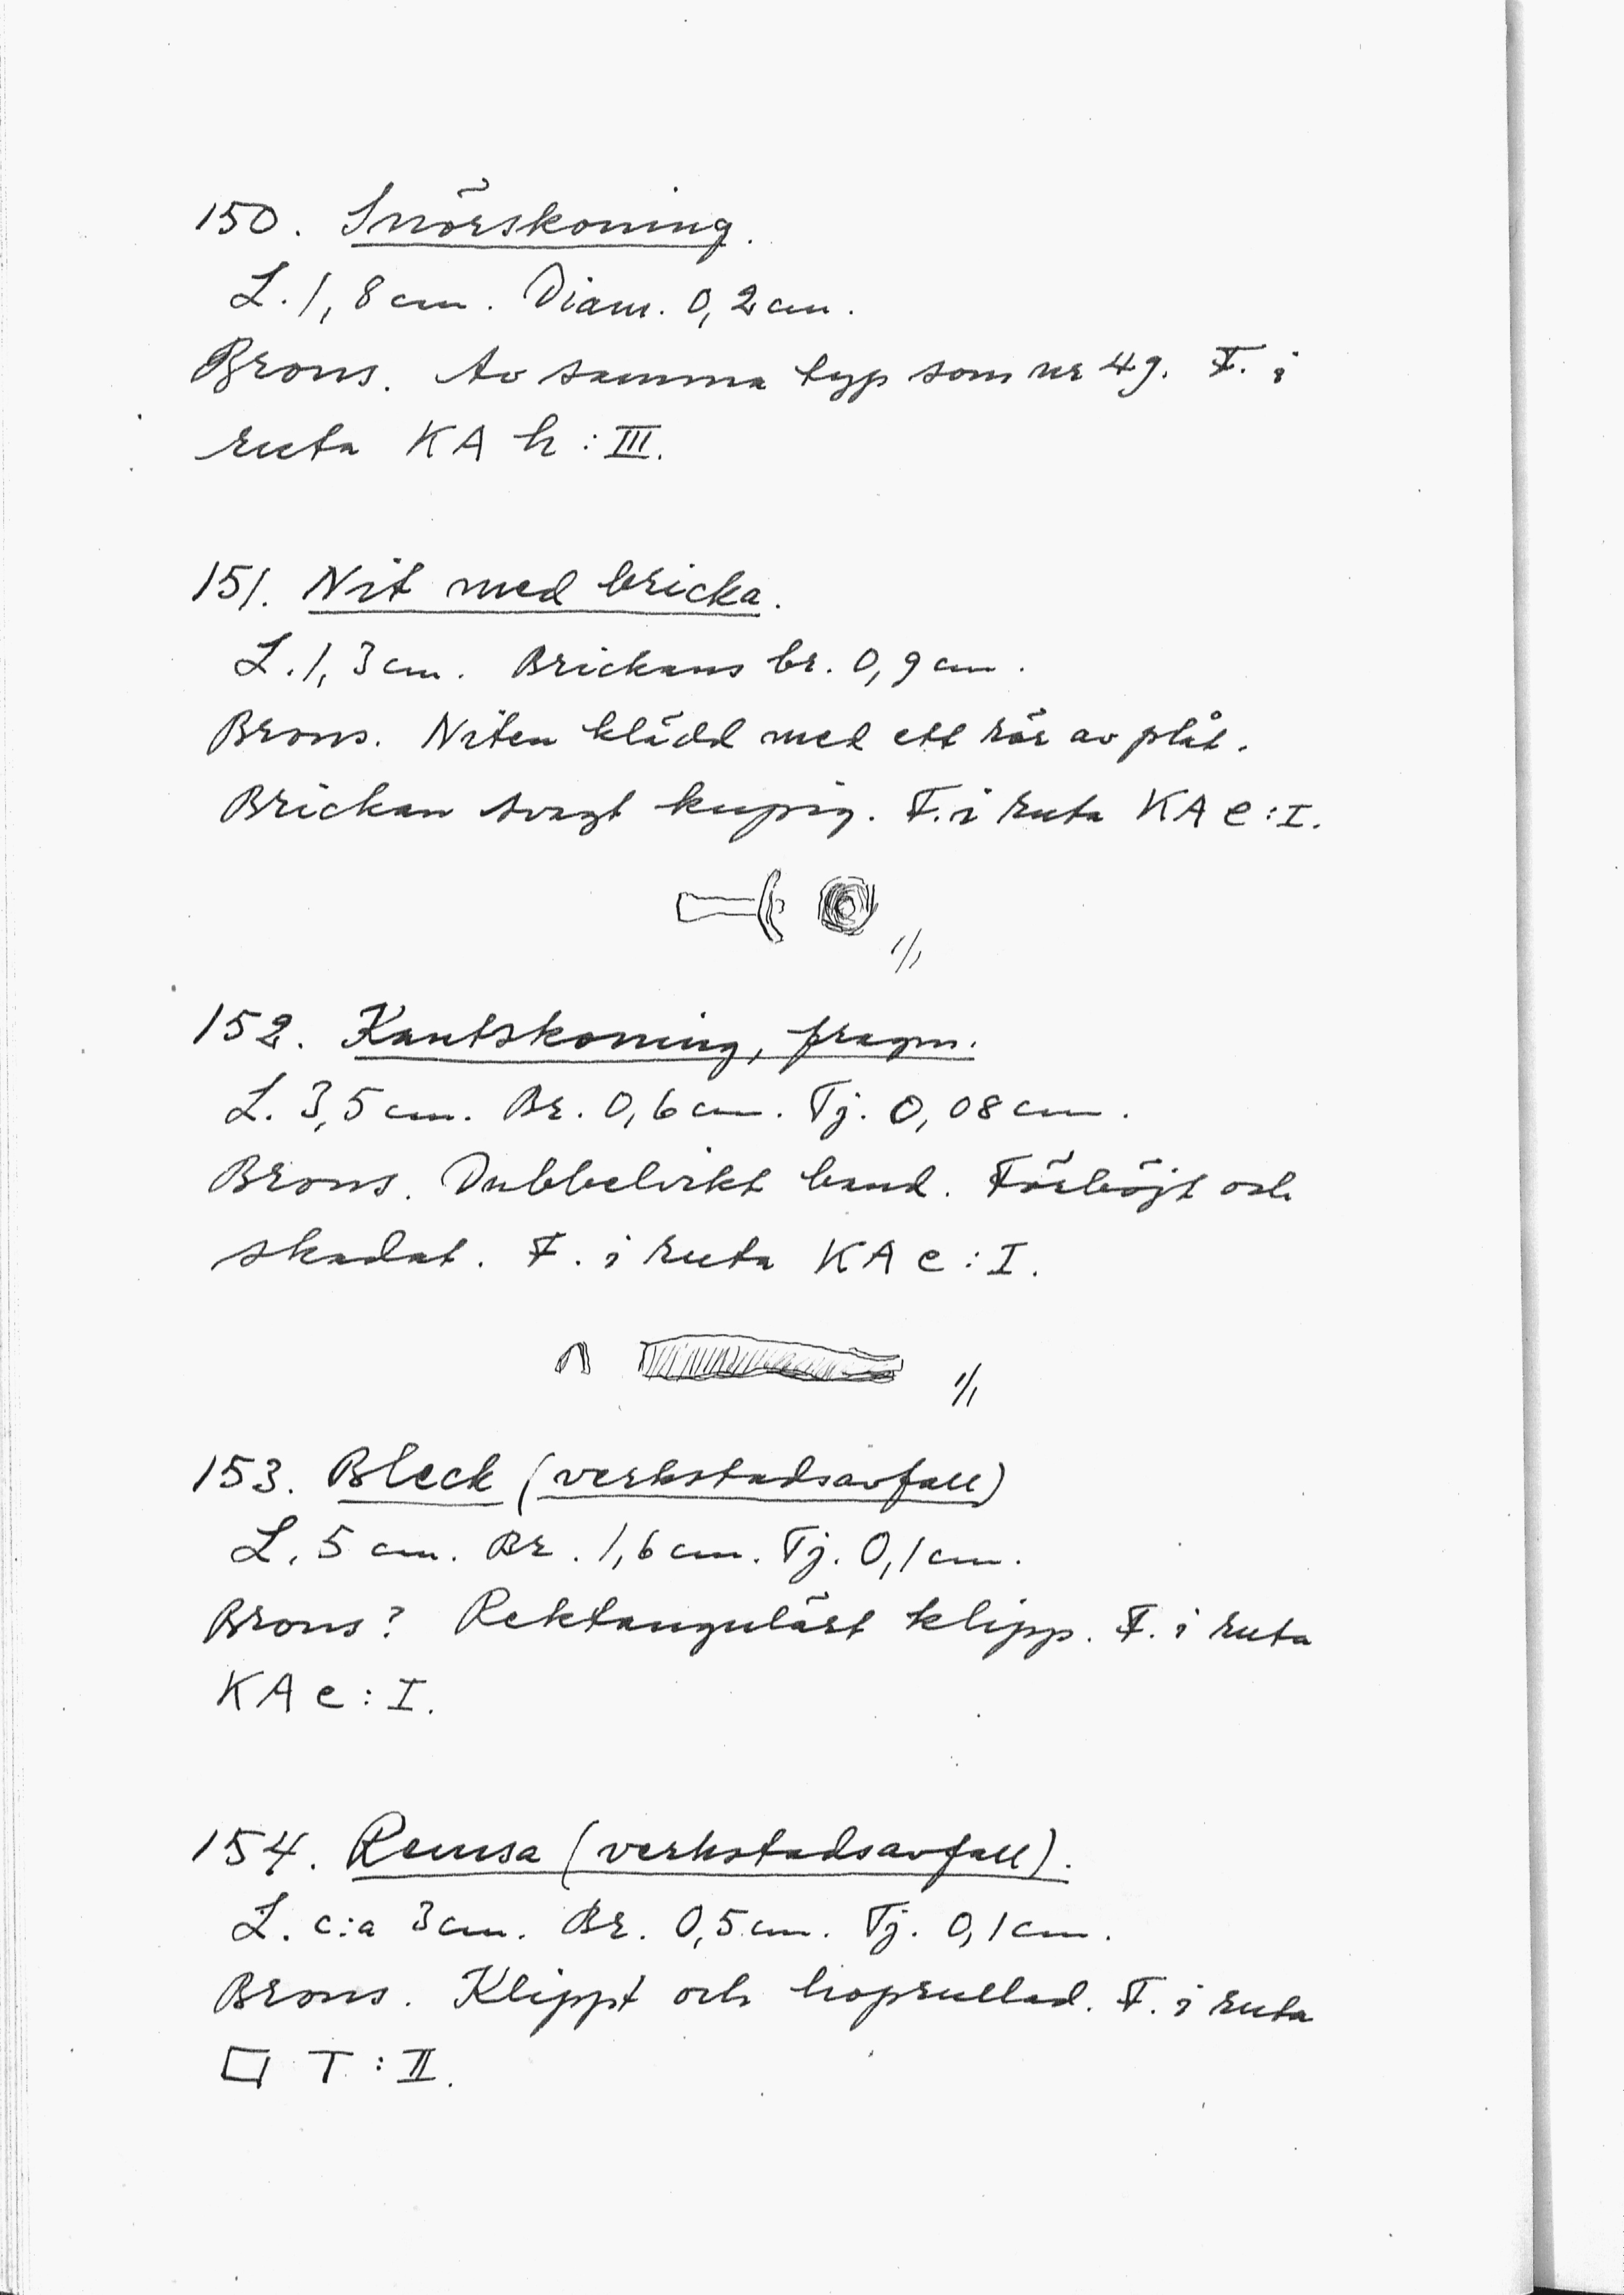 150. Snörskoning.
L. 1,8 cm. Diam. 0,2 cm.
Brons. Av samma typ som nr 49. F. i
ruta KA h : III.
151. Nit med bricka.
L. 1,3 cm. Brickans br. 0,9 cm.
Brons. Niten klädd med ett rör av plåt.
Brickan svagt kupig. F. i ruta KA e : I.
1/1
152. Kantskoning, fragm.
L. 3,5 cm. Br. 0,6 cm. Tj. 0,08 cm.
Brons. Dubbelvikt band. Förböjt och
skadat. F. i ruta KA e : I.
1/1
153. Bleck (verkstadsavfall)
L. 5 cm. Br. 1,6 cm. Tj. 0,1 cm.
Brons? Rektangulärt klipp. F. i ruta
KA e : I.
154. Remsa (verkstadsavfall).
L. c:a 3 cm. Br. 0,5 cm. Tj. 0,1 cm.
Brons. Klippt och hoprullad. F. i ruta
□ T : II.